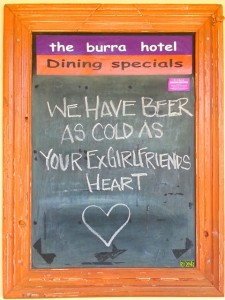 the burra hotel
Dining specials
WE HAVE BEER
AS COLD AS
YOUR EXGIRLFRIENDS
HEART